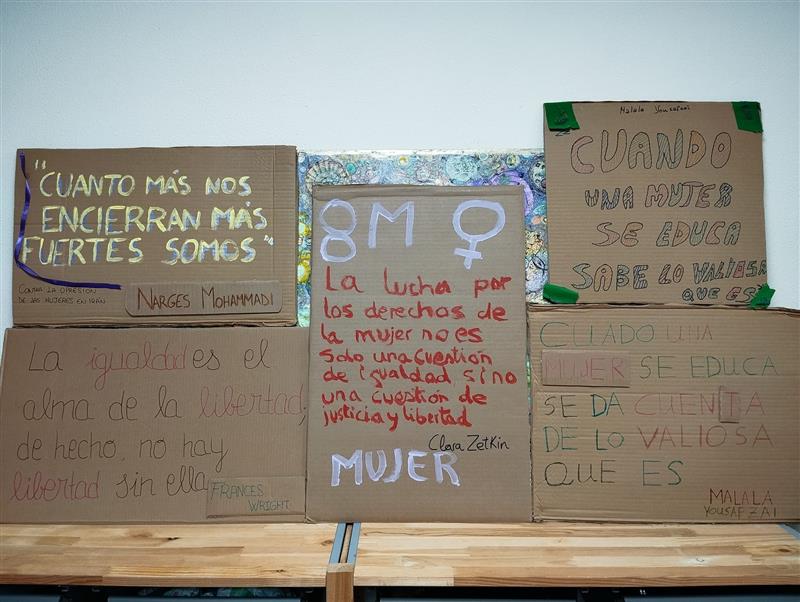 "CUANTO MÁS NOS
ENCIERRAN MÁS
FUERTES SOMOS"
CONTRA LA OPRESIÓN
DE LAS MUJERES EN IRÁN
NARGES MOHAMMADI
La igualdad es el
alma de la libertad;
de hecho, no hay
libertad sin ella
FRANCES
WRIGHT
8M
La lucha por
los derechos de
la mujer no es
solo una cuestión
de igualdad sino
una cuestión de
justicia y libertad
Clara Zetkin
MUJER
Malala Yousafzai
CUANDO
UNA MUJER
SE EDUCA
SABE LO VALIOSA
QUE ES
CUADO UNA
MUJER SE EDUCA
SE DA CUENTA
DE LO VALIOSA
QUE ES
MALALA
YOUSAFZAI